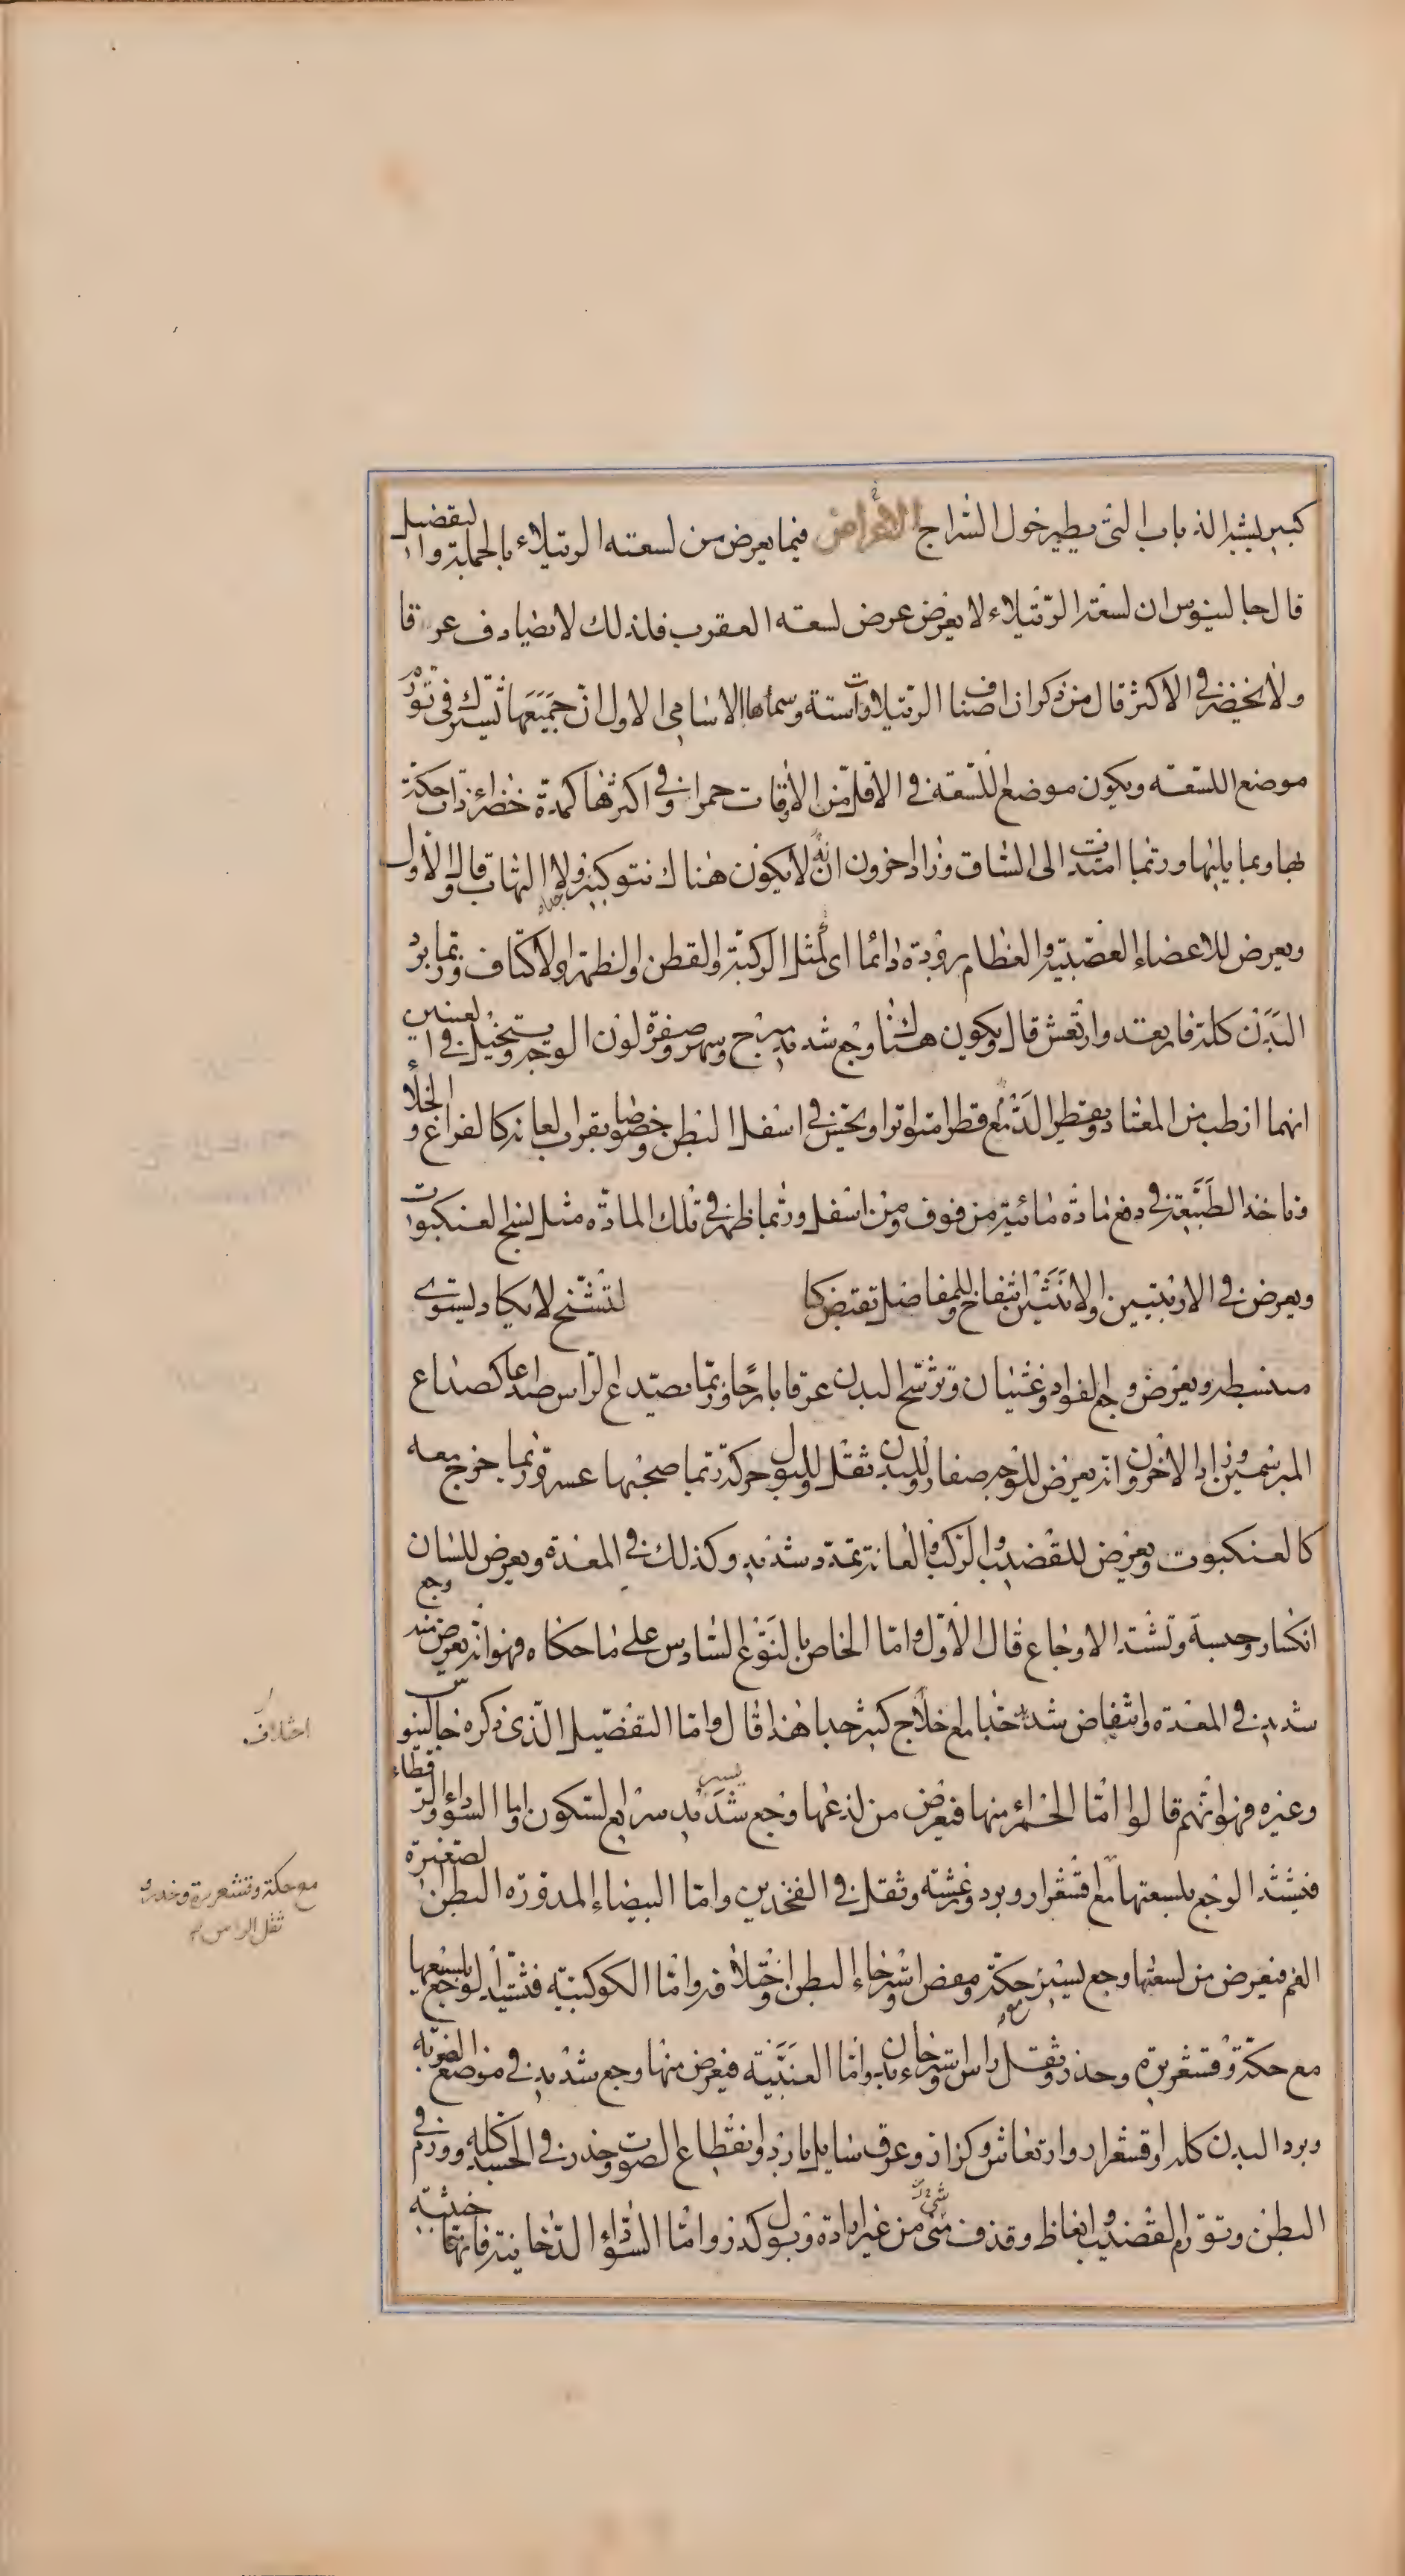 كبير يشبه الذباب التى يطير حول السّراج الاعراض فيما يعرض من لسعته الرتيلاء بالجملة والتفصيل
قال جالينوس ان لسعة الرّتيلاء لا يغرض عرض لسعته العقرب فلذلك لا يصادف عرقا
ولا يخضر فى الاكثر قال من ذكر ان اصناف الرتيلاوات ستة وسماها الاسامى الاول ان جميعها تشترك فى تورّم
موضع اللسعه ويكون موضع اللّسعة فى الاقل من الاوقات حمرا وفى اكثرها كمدة خضراء ذات حكة
بها وبما يليها وربما امتدت الى الساق وزاد اخرون انه لا يكون هناك نتو كبير ولا التهاب قال والاول
ويعرض للاعضاء العصبية والعظام برودة دائما اى لمثل الركبة والقطن والظهر والاكتاف وربما برد
البدن كله فارتعد وارتعش قال ويكون هناك وجع شديد مبرح وسهر وصفرة لون الوجه ويتخيل فى العينين
انهما ارطب من المعتاد ويقطر الدّمع قطرا متواترا ويحس فى اسفل البطن خصوصا بقرب العانة كالفراغ والخلأ
وتاخذ الطبيعة فى دفع مادة مائية من فوق ومن اسفل وربما ظهر فى تلك المادّه مثل نسج العنكبوت
ويعرض فى الاربيتين والانثيين انتفاخ وللمفاصل تقبض كما لتشنّج لا يكاد يستوى
منبسطه ويعرض وجع الفواد وغشيان وترشح البدن عرقا باردًا وربّما يصدع الرّاس صداعا كصداع
المبرسمين وزاد الاخرون انه يعرض للوجه صفار وللبدن ثقل وللبول حرقة ربّما صحبها عسر وربما خرج معه
كالعنكبوت ويعرض للقضيب والركب والعانة تمدد شديد وكذلك فى المعدة ويعرض للسان
انكسار وحبسة وتشتد الاوجاع قال الاول وامّا الخاص بالنوع السادس على ما حكاه فهو انه يعرض منه وجع
شديد فى المعدة وانتفاض شديد جدا مع خلاج كثير جدا هذا قال وامّا التفضيل الذى ذكره جالينوس
وغيره فهو انهم قالوا امّا الحمراء منها فيعرض من لذعها وجع شديد يسير سريع السكون واما السوداء والرقطاء
فيشتد الوجع بلسعتها مع اقشعرار وبرد ورعشة وثقل فى الفخذين وامّا البيضاء المدورة البطن الصغيرة
الفم فيعرض من لسعتها وجع يسير وحكة ومغص واسترخاء البطن واختلاف واما الكوكبية فيشتد الوجع بلسعها
مع حكة وقشعريرة وحدر وثقل راس واسترخاء بدن وامّا العنبية فيعرض منها وجع شديد فى موضع الضربة
وبرد البدن كله واقشعرار وارتعاش وكزاز وعرق سايل بارد وانقطاع الصوت وخدر فى الجسد كله وورم فى
البطن وتورّم القضيب وانعاظ وقذف منى من غير ارادة وبول كدر وامّا السّوداء الدّخانية فانها خبيثة
اختلاف
مع حكة وقشعريرة وخدر و
ثقل الراس